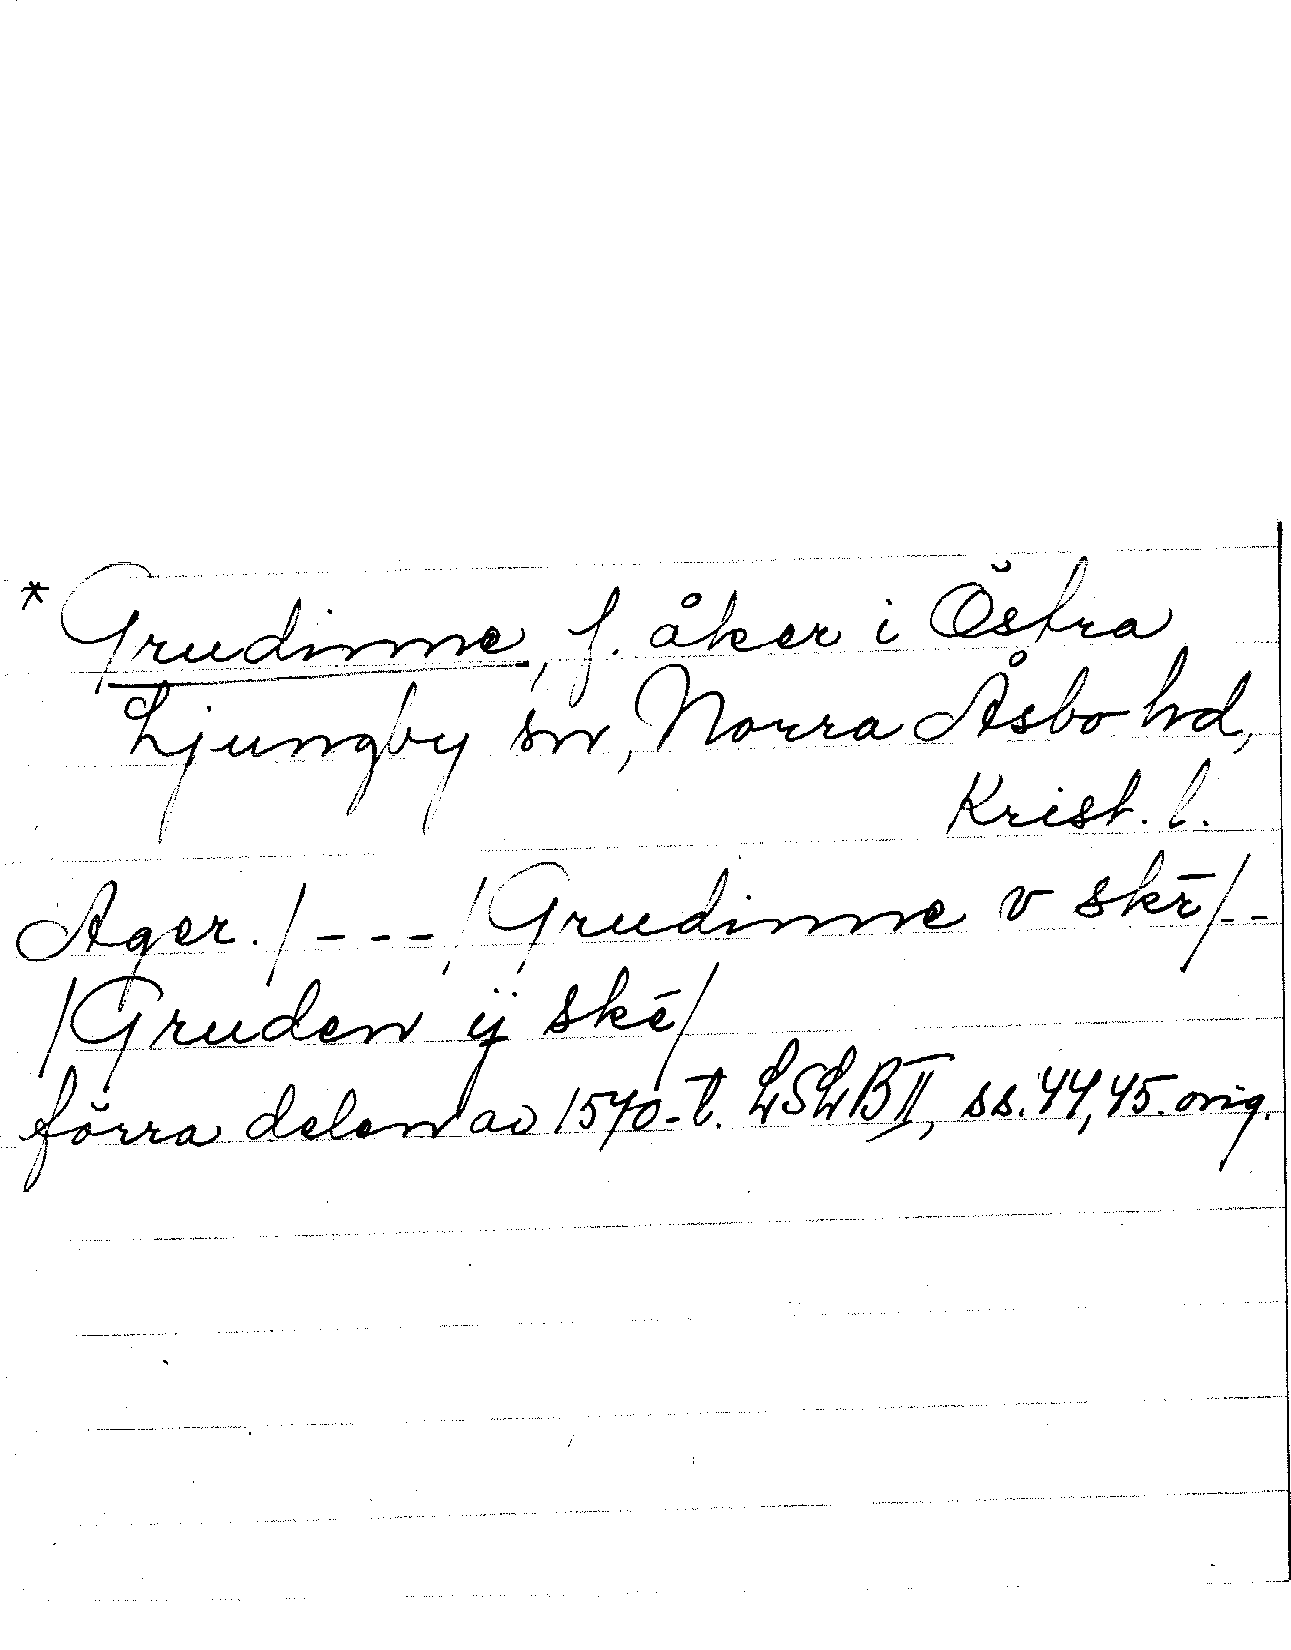 * Grudinne, f. åker i Östra
Ljungby sn, Norra Åsbo hd,
Krist. l.
Ager. / - - - / Grudinne v skē / - -
/ Gruden ij skē /
förra delen av 1570-t. LSLB II, ss. 44, 45. orig.